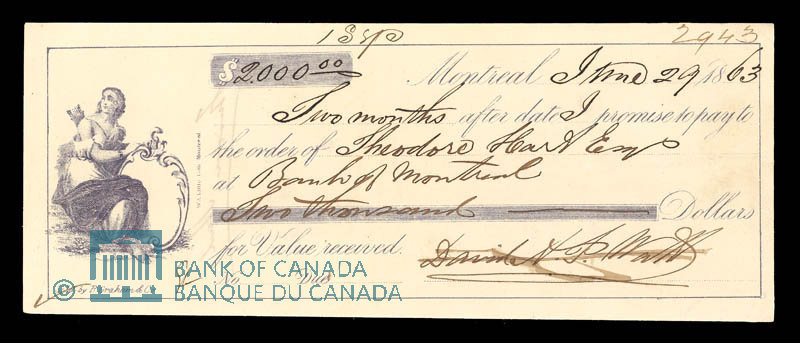 1 Sep 2943
$2.000 00 Montreal June 29 1863
Two months after date I promise to pay to
the order of Theodore Hart Esq
at Bank of Montreal
Two thousand Dollars
for Value received. David A. P. Watt
No Due
© BANK OF CANADA
BANQUE DU CANADA